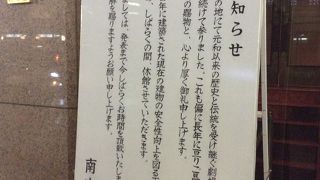 知らせ
の地にて元和以来の歴史と伝統を受け継ぐ劇
続けて参りました。これも偏に長年に亘り
の賜物と、心より厚く御礼申し上げます。
年に建築された現在の建物の安全性向上を図る
、しばらくの間、休館させていただきます。
ましては、発表まで今しばらくお時間を頂戴いたし
解を賜りますようお願い申し上げます。
南